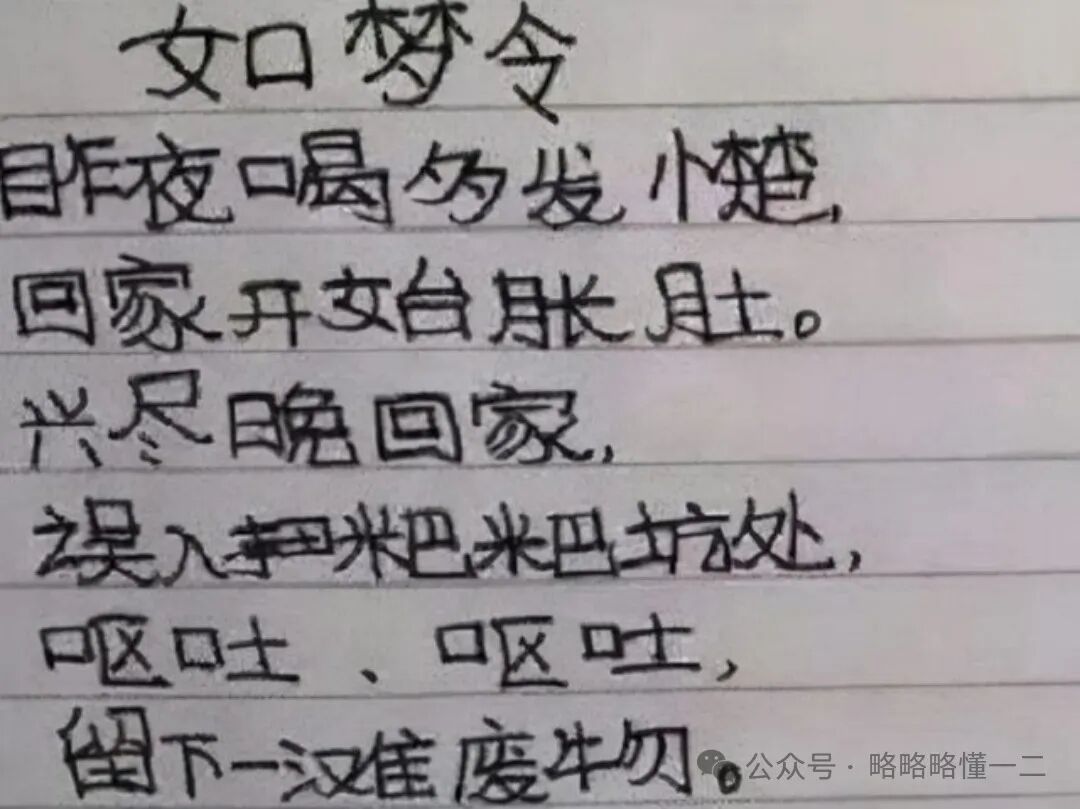 如梦令
昨夜喝多发憷,
回家开始胀肚。
兴尽晚回家,
误入粑粑坑处,
呕吐、呕吐,
留下一滩废物。
公众号·略略略懂一二